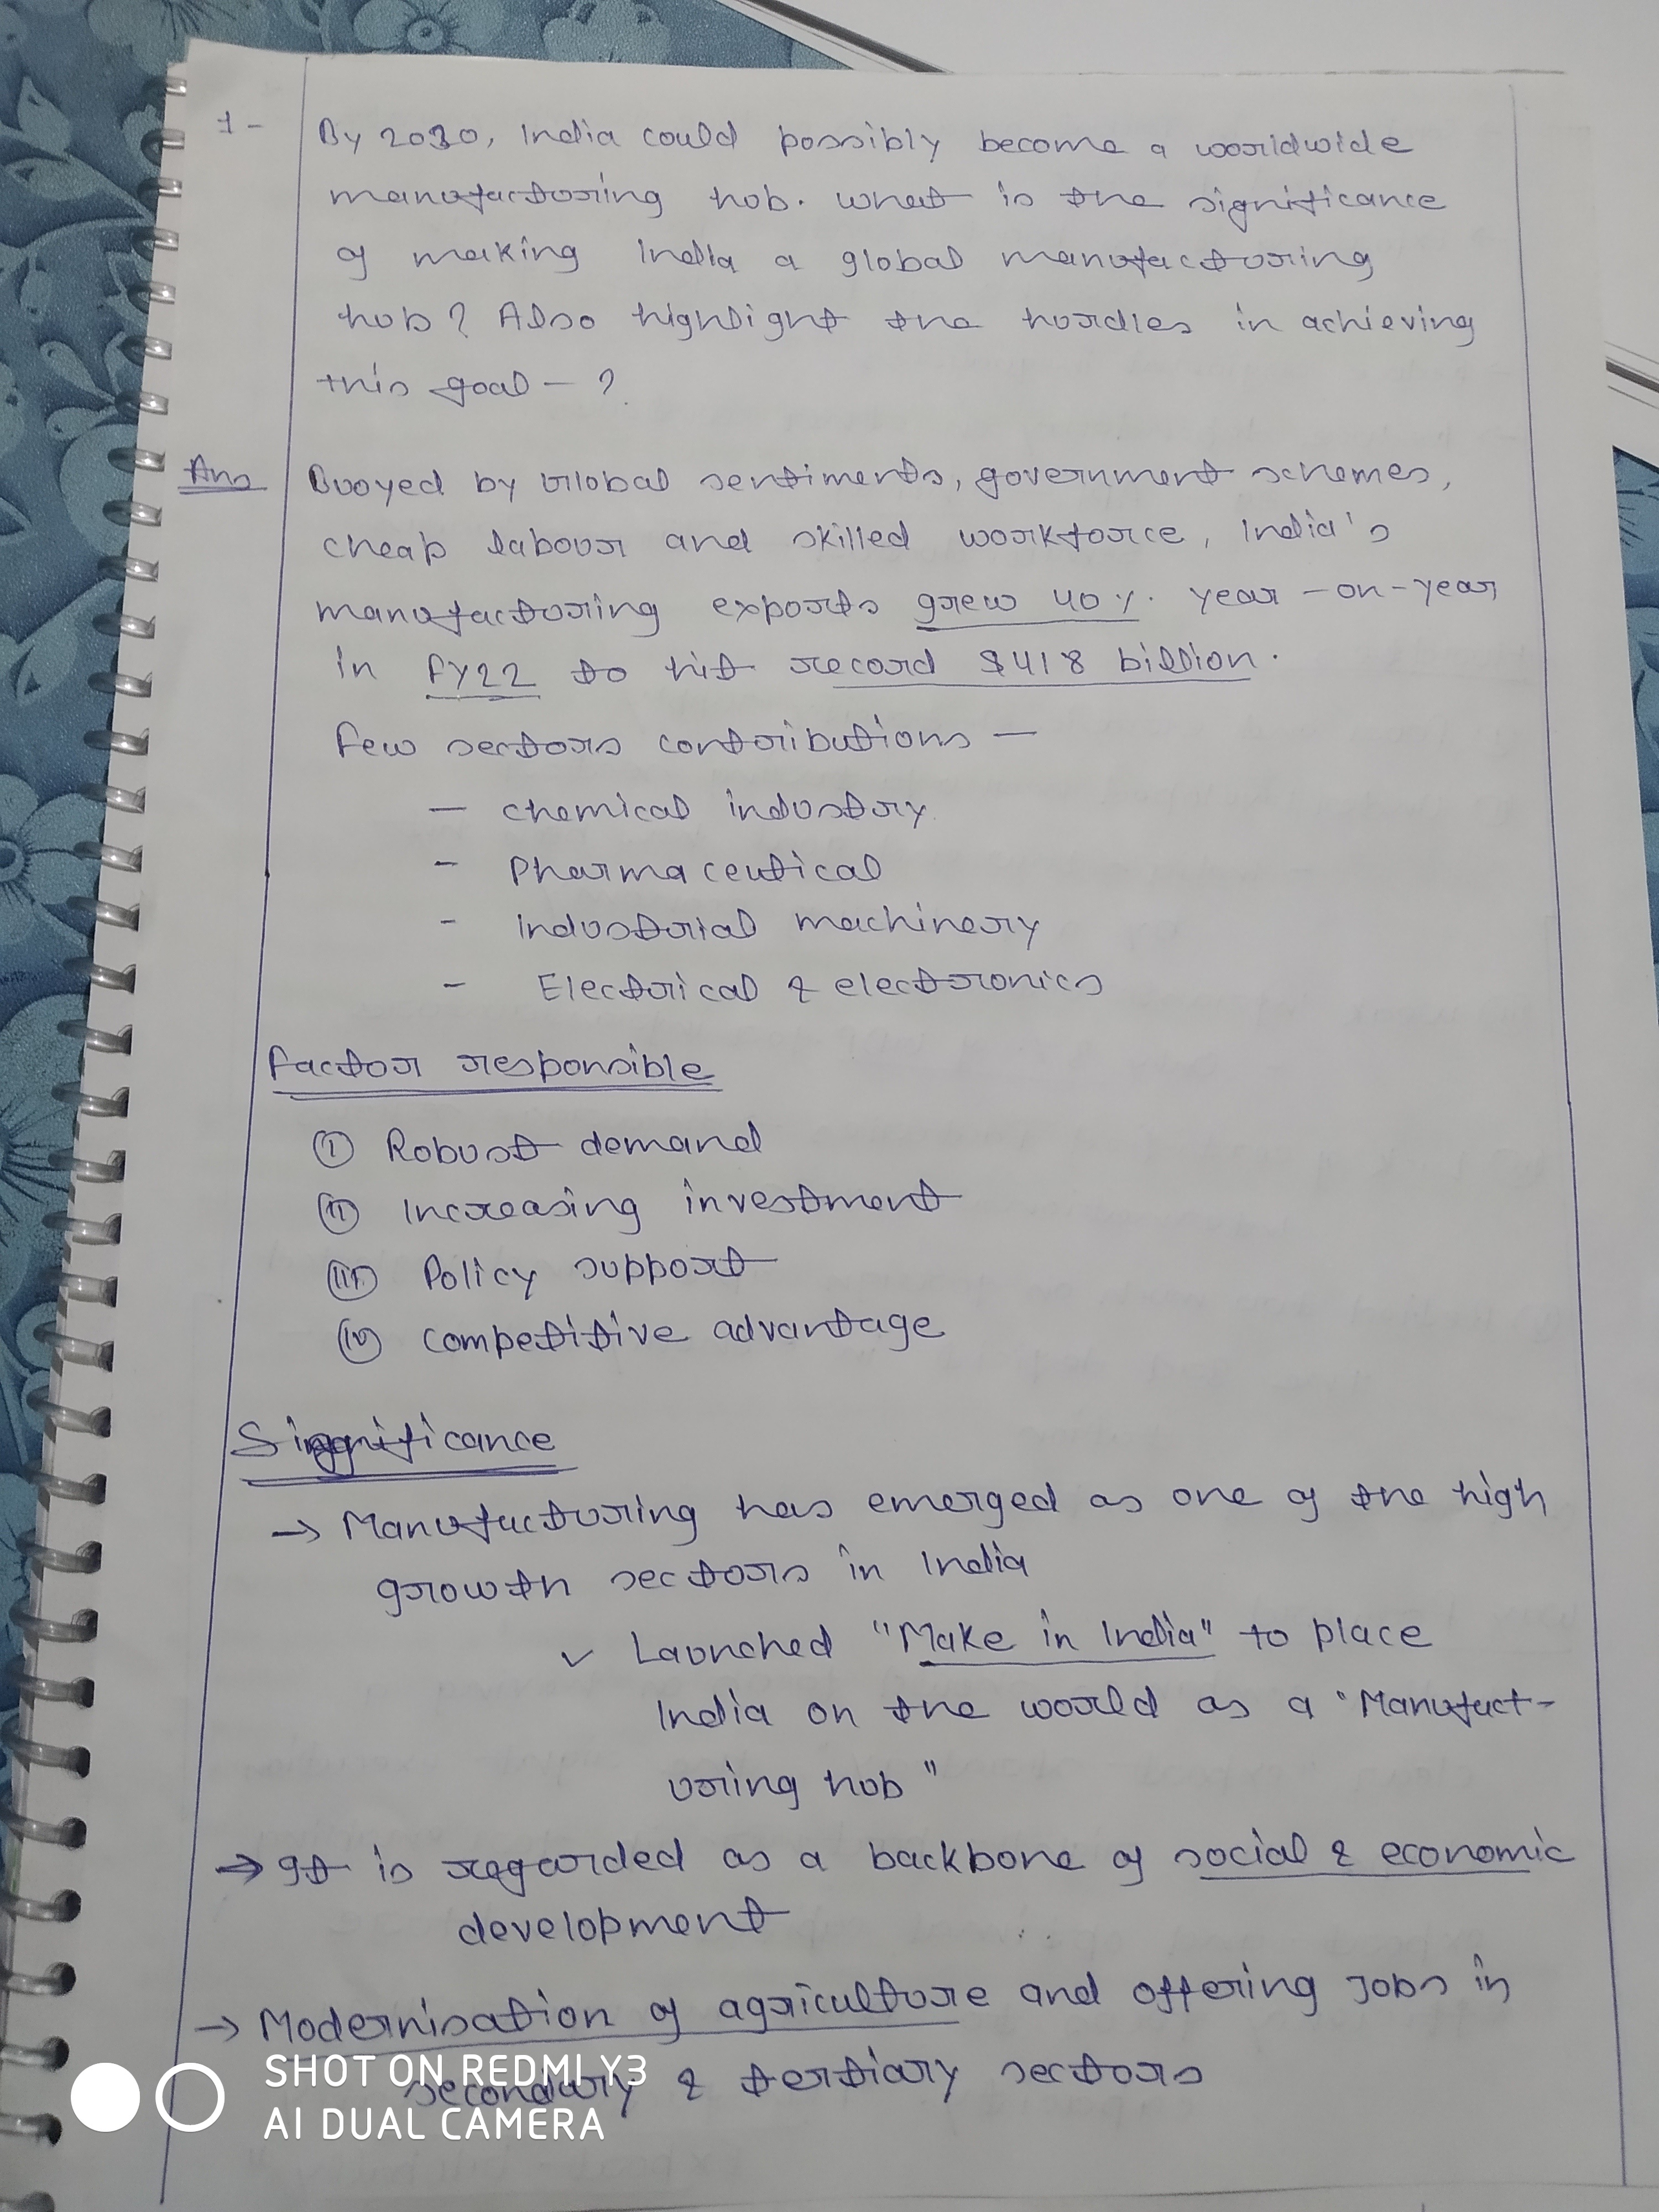 1-
By 2030, India could possibly become a worldwide
manufacturing hub. what is the significance
of making India a global manufacturing
hub? Also highlight the hurdles in achieving
this goal - ?
Ans
Buoyed by Global sentiments, government schemes,
cheap labour and skilled workforce, India's
manufacturing exports grew 40%. year-on-year
in FY22 to hit record $418 billion.
Few sectors contributions —
- chemical industry
- Pharmaceutical
- Industrial machinery
- Electrical & electronics
Factor responsible
(i) Robust demand
(ii) Increasing investment
(iii) Policy support
(iv) competitive advantage
Significance
→ Manufacturing has emerged as one of the high
growth sectors in India
✓ Launched "Make in India" to place
India on the world as a "Manufact-
uring hub"
→ It is regarded as a backbone of social & economic
development
→ Modernisation of agriculture and offering Jobs in
secondary & tertiary sectors
SHOT ON REDMI Y3
AI DUAL CAMERA